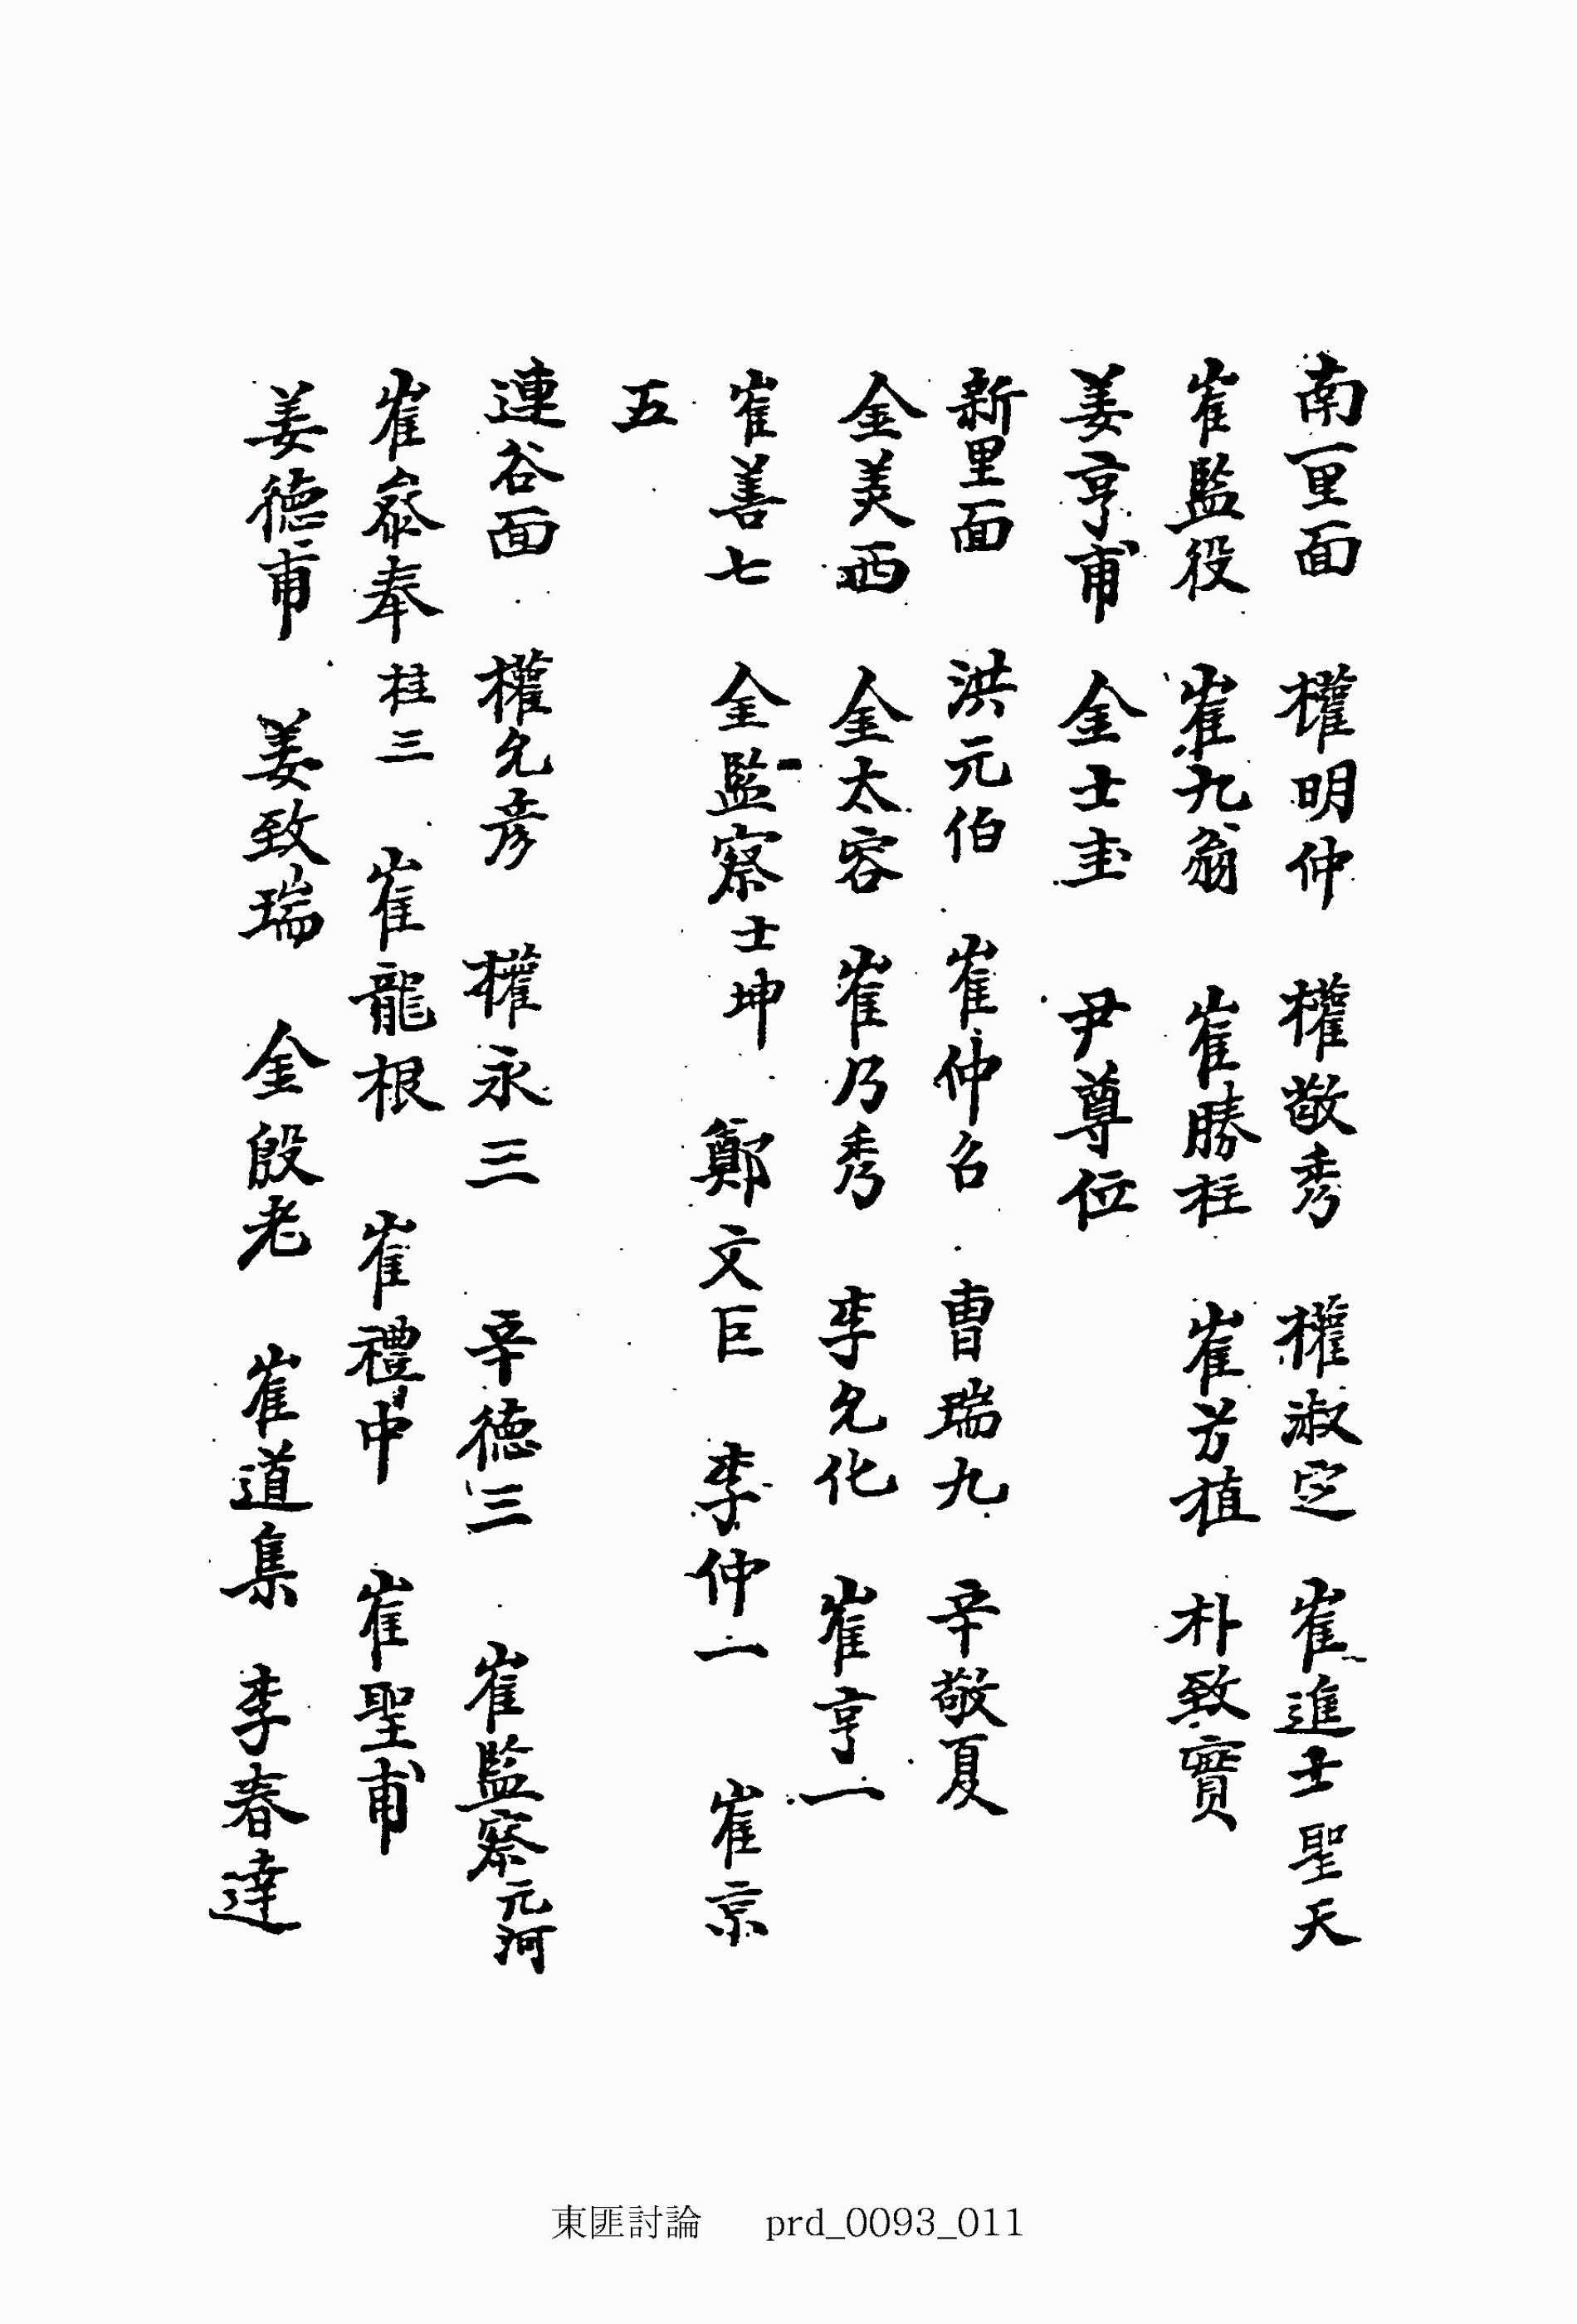 南一里面 權明仲 權敬秀 權淑定 崔進士聖天
崔監役 崔九翁 崔勝柱 崔芳植 朴致實
姜亨甫 金士圭 尹尊位
新里面 洪元伯 崔仲召 曺瑞九 辛敬夏
金美西 金太容 崔乃秀 李允化 崔亨一
崔善七 金監察士坤 鄭文巨 李仲一 崔京
五
連谷面 權允彦 權永三 辛德三 崔監察元河
崔叅奉桂三 崔龍根 崔禮中 崔聖甫
姜德甫 姜致瑞 金殷老 崔道集 李春達
東匪討論 prd_0093_011